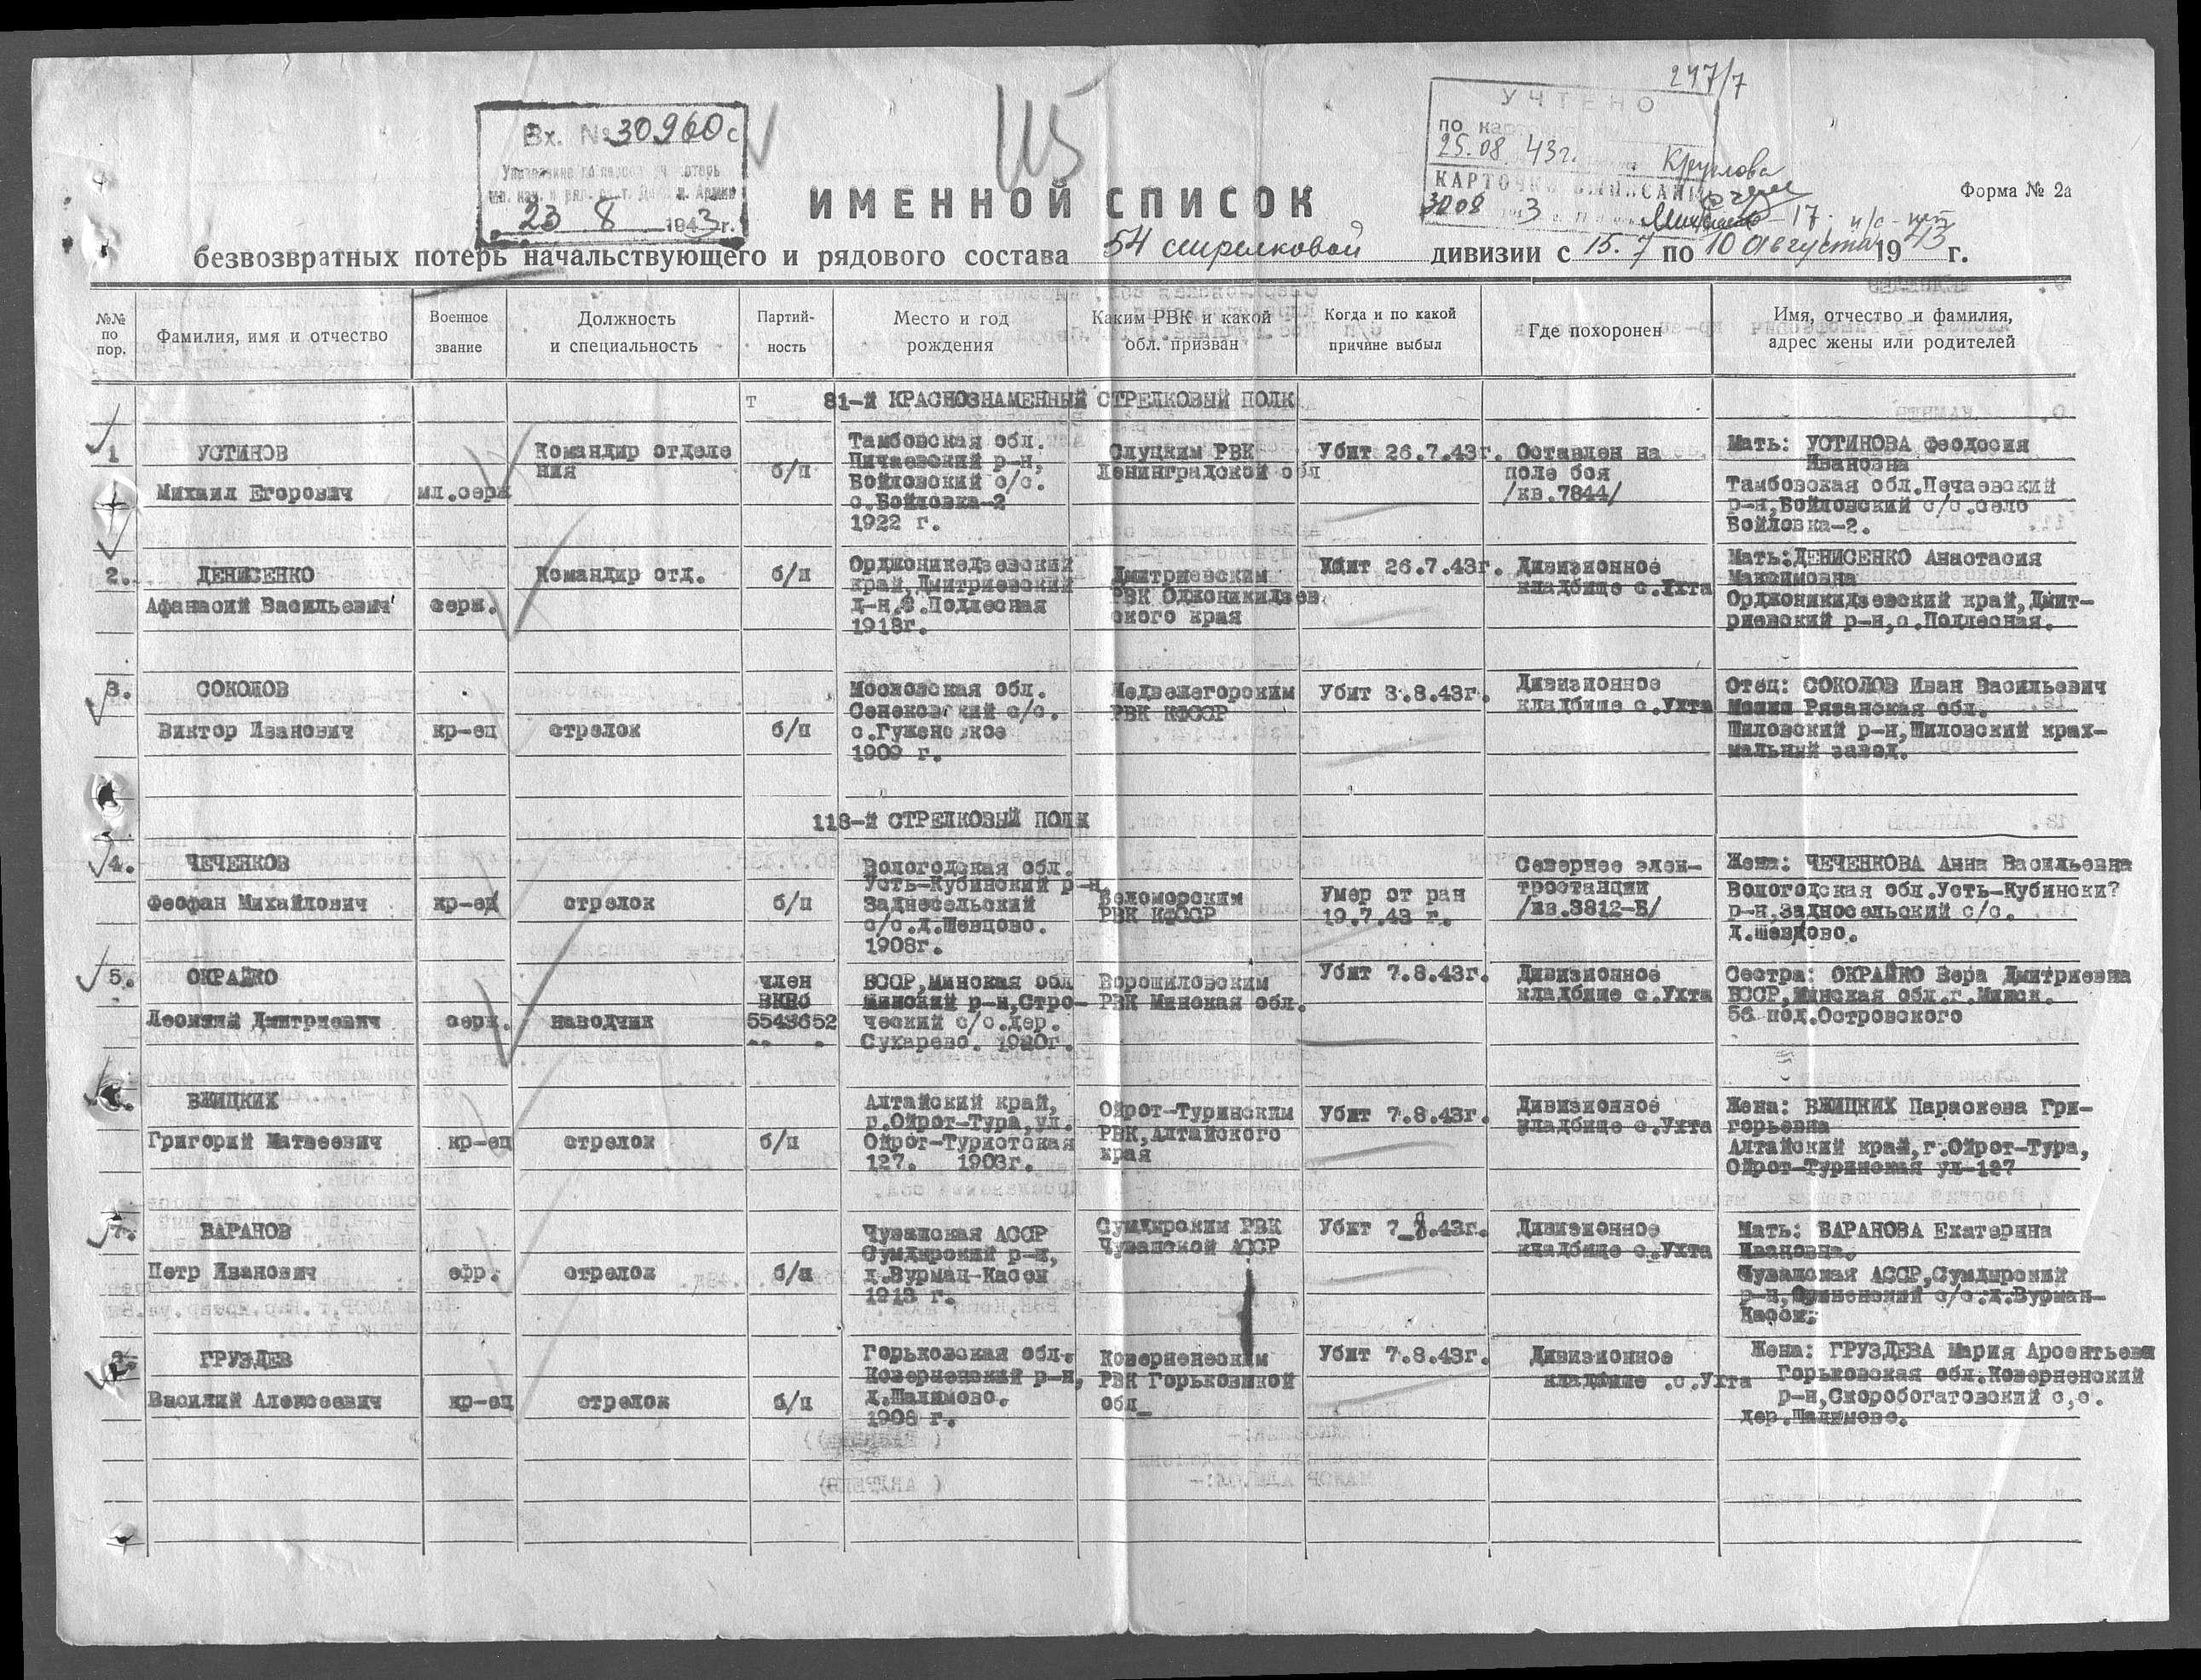 247/7
115
Вх. № 30960с
23 8 1943г.
УЧТЕНО
по
25.08.43г.
Круглова
КАРТОЧКИ
ИМЕННОЙ СПИСОК
Форма № 2а
безвозвратных потерь начальствующего и рядового состава 54 стрелковой дивизии с 15.7 по 10 августа 1943 г.
№№ по пор.
Фамилия, имя и отчество
Военное звание
Должность и специальность
Партий-ность
Место и год рождения
Каким РВК и какой обл. призван
Когда и по какой причине выбыл
Где похоронен
Имя, отчество и фамилия, адрес жены или родителей
т
81-й КРАСНОЗНАМЕННЫЙ СТРЕЛКОВЫЙ ПОЛК
1
УСТИНОВ
Михаил Егорович
мл.серж
Командир отделе
ния
б/п
Тамбовская обл.
Пичаевский р-н,
Войловский с/с.
с.Войловка-2
1922 г.
Слуцким РВК
Ленинградской обл
Убит 26.7.43г.
Оставлен на
поле боя
/кв.7844/
Мать: УСТИНОВА Феодосия
Ивановна
Тамбовская обл.Печаевский
р-н,Войловский с/с.село
Войловка-2.
2.
ДЕНИСЕНКО
Афанасий Васильевич
серж.
Командир отд.
б/п
Орджоникедзевский
край,Дмитриевский
с.Подлесная
1918г.
Дмитриевским
РВК Оджоникидзев
ского края
Убит 26.7.43г.
Дивизионное
кладбище с.Ухта
Мать:ДЕНИСЕНКО Анастасия
Максимовна
Орджоникидзевский край,Дмит-
риевский р-н,с.Подлесная.
3.
СОКОЛОВ
Виктор Иванович
кр-ец
стрелок
б/п
Московская обл.
с/с.
1909 г.
Медвежегорским
РВК КФССР
Убит 3.8.43г.
Дивизионное
кладбище с.Ухта
Отец: СОКОЛОВ Иван Васильевич
Рязанская обл.
Шиловский р-н,Шиловский крах-
мальный завод.
118-й СТРЕЛКОВЫЙ ПОЛК
4.
ЧЕЧЕНКОВ
Феофан Михайлович
кр-ец
стрелок
б/п
Вологодская обл.
Усть-Кубинский р-н
Заднесельский
с/с.д.Шевцово.
1908г.
Беломорским
РВК КФССР
Умер от ран
19.7.43 г.
Севернее элек-
тростанции
/кв.3812-Б/
Жена: ЧЕЧЕНКОВА Анна Васильевна
Вологодская обл.Усть-Кубински?
р-н,Задносельский с/с.
д.шевцово.
5.
ОКРАЙКО
Леонтий Дмитриевич
серж.
наводчик
член
ВКПб
5543652
БССР,Минская обл
Минский р-н,Стро-
ческий с/с.дер.
Сухарево. 1920г.
Ворошиловским
РВК Минская обл.
Убит 7.8.43г.
Дивизионное
кладбище с.Ухта
Сестра: ОКРАЙКО Вера Дмитриевна
БССР,Минская обл.г.Минск.
56 под.Островского
ВЖИЦКИХ
Григорий Матвеевич
кр-ец
стрелок
б/п
Алтайский край,
г.Ойрот-Тура,ул.
Ойрот-Туристская
127. 1903г.
Ойрот-Туринским
РВК,Алтайского
края
Убит 7.8.43г.
Дивизионное
кладбище с.Ухта
Жена: ВЖИЦКИХ Параскева Гри-
горьевна
Алтайский край,г.Ойрот-Тура,
Ойрот-Туринская ул-127
7.
ВАРАНОВ
Петр Иванович
ефр.
стрелок
б/п
Чувашская АССР
Сумдырский р-н,
д.Вурман-Касон
1913 г.
Сумдырским РВК
Чувашской АССР
Убит 7_8.43г.
Дивизионное
кладбище с.Ухта
Мать: ВАРАНОВА Екатерина
Ивановна.
Чувашская АССР,Сумдырский
с/с.д.Вурман-
Касои.
ГРУЗДЕВ
Василий Алексеевич
кр-ец
стрелок
б/п
Горьковская обл.
Коверненский р-н,
д.Шалимово.
1908 г.
Коверненеским
РВК Горьковикой
обл_
Убит 7.8.43г.
Дивизионное
кладбище .с.Ухта
Жена: ГРУЗДЕВА Мария Арсентьевн
Горьковская обл.Коверненский
р-н,Скоробогатовский с,с.
дер.Шалимово.